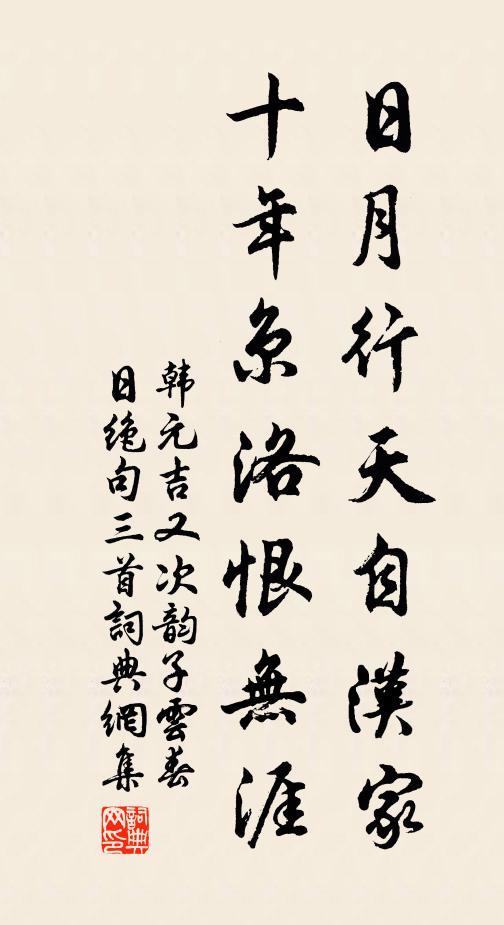 日月行天自漢家
十年京洛恨無涯
韩元吉又次韵子雲春
日绝句三首詞典網集
詞典
网印